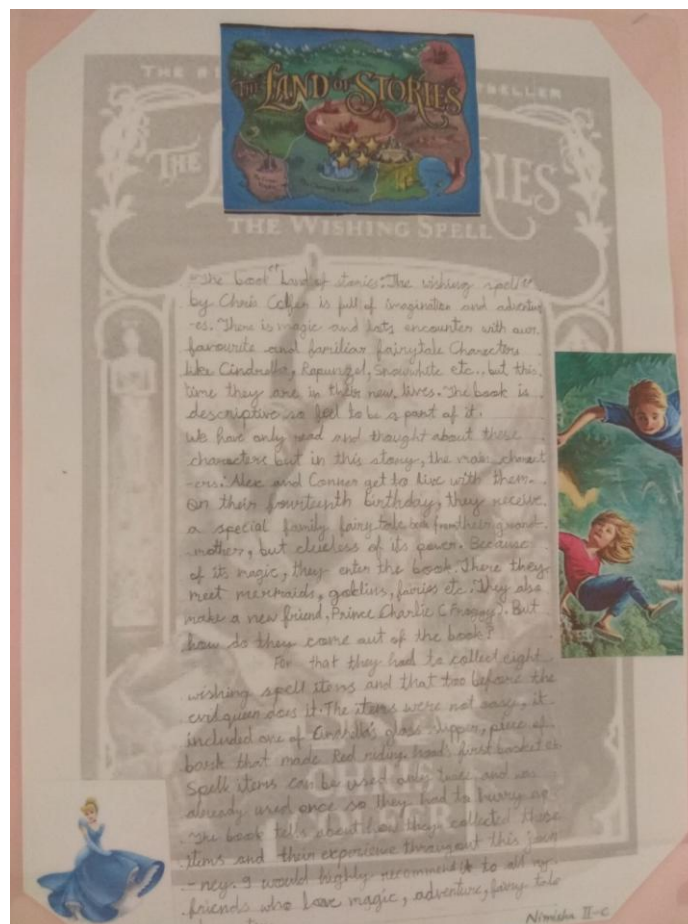 THE LAND OF STORIES
THE
TSELLER
THE
RIES
THE WISHING SPELL
The book "Land of stories: The wishing spell"
by Chris Colfer is full of imagination and adventur
-es. There is magic and lots encounter with our
favourite and familiar fairytale Characters
like Cindrella, Rapunzel, Snowwhite etc., but this
time they are in their new lives. The book is
descriptive so feel to be a part of it.
We have only read and thought about these
characters but in this story, the main charact
-ers: Alex and Conner get to live with them.
On their fourteenth birthday, they receive
a special family fairy tale book from their grand-
mother, but clueless of its power. Because
of its magic, they enter the book. There they
meet mermaids, goblins, fairies etc. They also
make a new friend, Prince Charlie (Froggy). But
how do they come out of the book?
For that they had to collect eight
wishing spell items and that too before the
evil queen does it. The items were not easy, it
included one of glass slipper, piece of
bark that made Red riding hood's first basket
Spell items can be used only twice and was
already used once so they had to hurry up
The book tells about how they collected those
items and their experience throughout this jour
-ney. I would highly recommend it to all my
friends who love magic, adventure, fairy tale
CHRIS
COLFER
Nimisha II-C